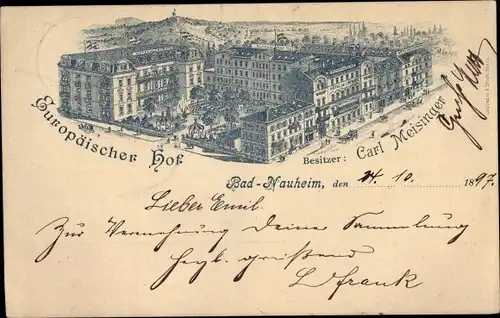 Europäischer Hof
Besitzer: Carl Meisinger
Bad-Nauheim, den 24. 10. 1897
Lieber Emil.
Zur Vermehrung Deiner Sammlung
herzl. grüßend
Frank